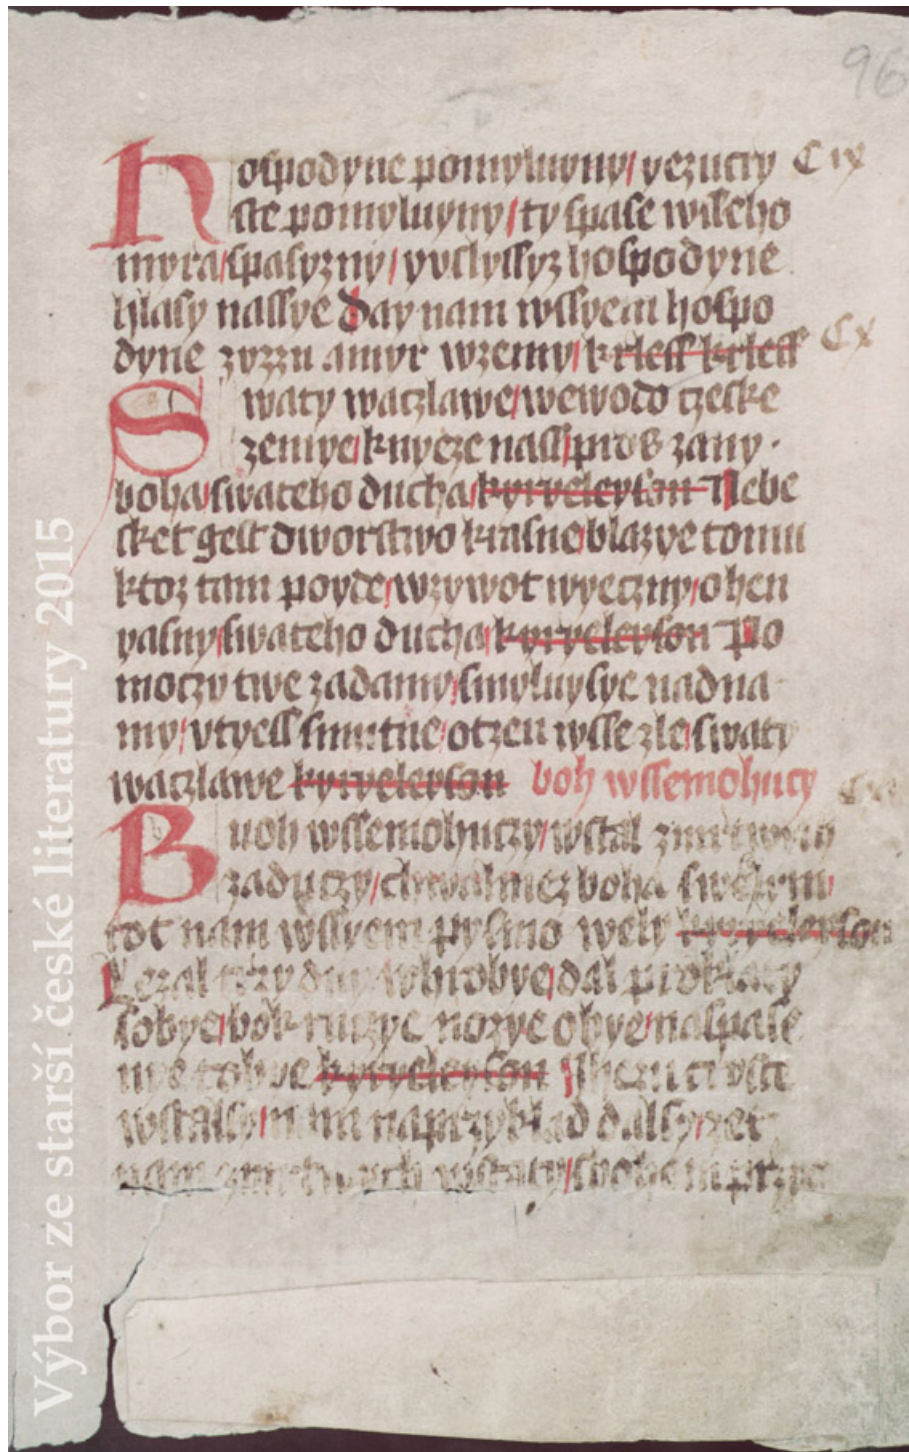 96
Hospodyne pomyluyny/ yezucry C ix
ste pomyluyny/ ty spase wsseho
myra/ spasyzny/ yvslyssyz hospodyne
hlasy nassye Day nam wssyem hospo
dyne zyzzn amyr wzemy/ krless krless C x
Swaty waczlawe/ wewodo czeske
zemye/ knyeze nass/ pros zany ·
boha/ swateho ducha/ kyryeleyson Nebe
sket gest dworstwo krasne/ blazye tomu
ktoz tam poyde/ wzywot wyeczny/ ohen
yasny/ swateho ducha/ kyryeleyson Po
moczy twe zadamy/ smyluysye nadna
my/ vtyess smutne/ otzen wsse zle/ swaty
waczlawe kyryeleyson boh wssemohucy
Buoh wssemohuczy/ wstal
zaduczy/ chwalmez boha
tot nam wssyem pysmo wely kyryeleyson
Lezal trzy dny whrobye/ dal proklaty
sobye/ bok ruczye nozye obye/ naspase
nye tobye kyryeleyson
wstalsy/ nam naprzyklad dalsy/ zet
nam wstaty/ sbohem
Výbor ze starší české literatury 2015